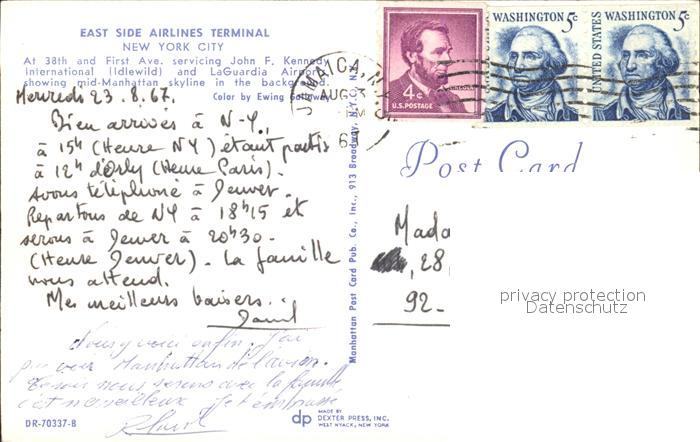 EAST SIDE AIRLINES TERMINAL
NEW YORK CITY
At 38th and First Ave. servicing John F. Kennedy
International (Idlewild) and LaGuardia Airports
showing mid-Manhattan skyline in the background.
Color by Ewing Galloway, N.Y.
Mercredi 23.8.67.
Bien arrivés à N-Y.,
à 15h (Heure NY) étant partis
à 12h d'Orly (Heure Paris).
Avons téléphoné à Denver.
Repartons de NY à 18h15 et
serons à Denver à 20h30-
(Heure Denver). La famille
nous attend.
Mes meilleurs baisers..
Nous y voici enfin. J'ai
pu voir Manhattan de l'avion.
Ce soir nous serons avec la famille
c'est merveilleux. Je t'embrasse
DR-70337-B
Manhattan Post Card Pub. Co., Inc., 913 Broadway, N.Y.C., N.Y.
dp
MADE BY
DEXTER PRESS, INC.
WEST NYACK, NEW YORK
JAMAICA, N.Y.
AUG
4¢
LINCOLN
U.S. POSTAGE
WASHINGTON 5c
WASHINGTON 5c
UNITED STATES
Post Card
Mada
, 28,
92-
privacy protection
Datenschutz